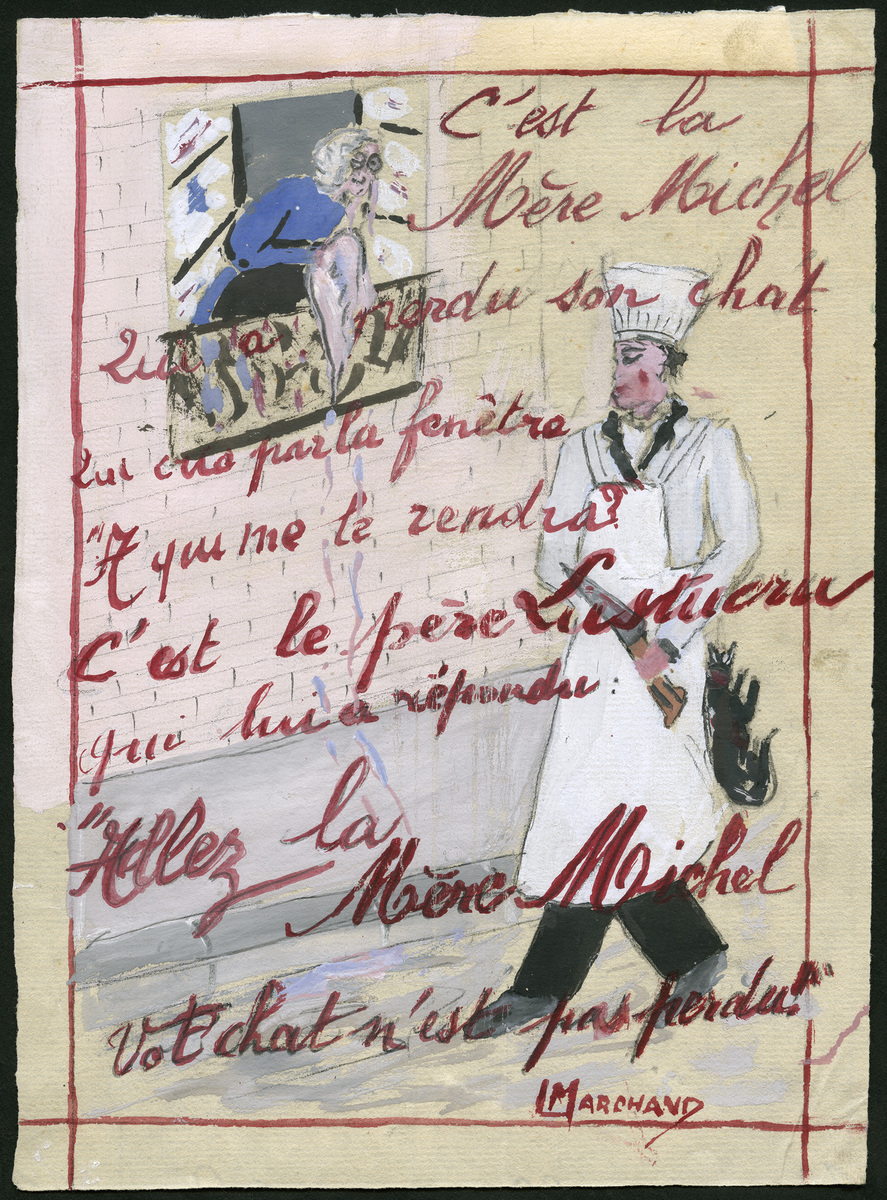 C'est la
Mère Michel
Qui a perdu son chat
Qui crie par la fenêtre
"A qui me le rendra?
C'est le père Lustucru
qui lui a répondu :
"Allez la
Mère Michel
Vot' chat n'est pas perdu!"
LMARCHAND